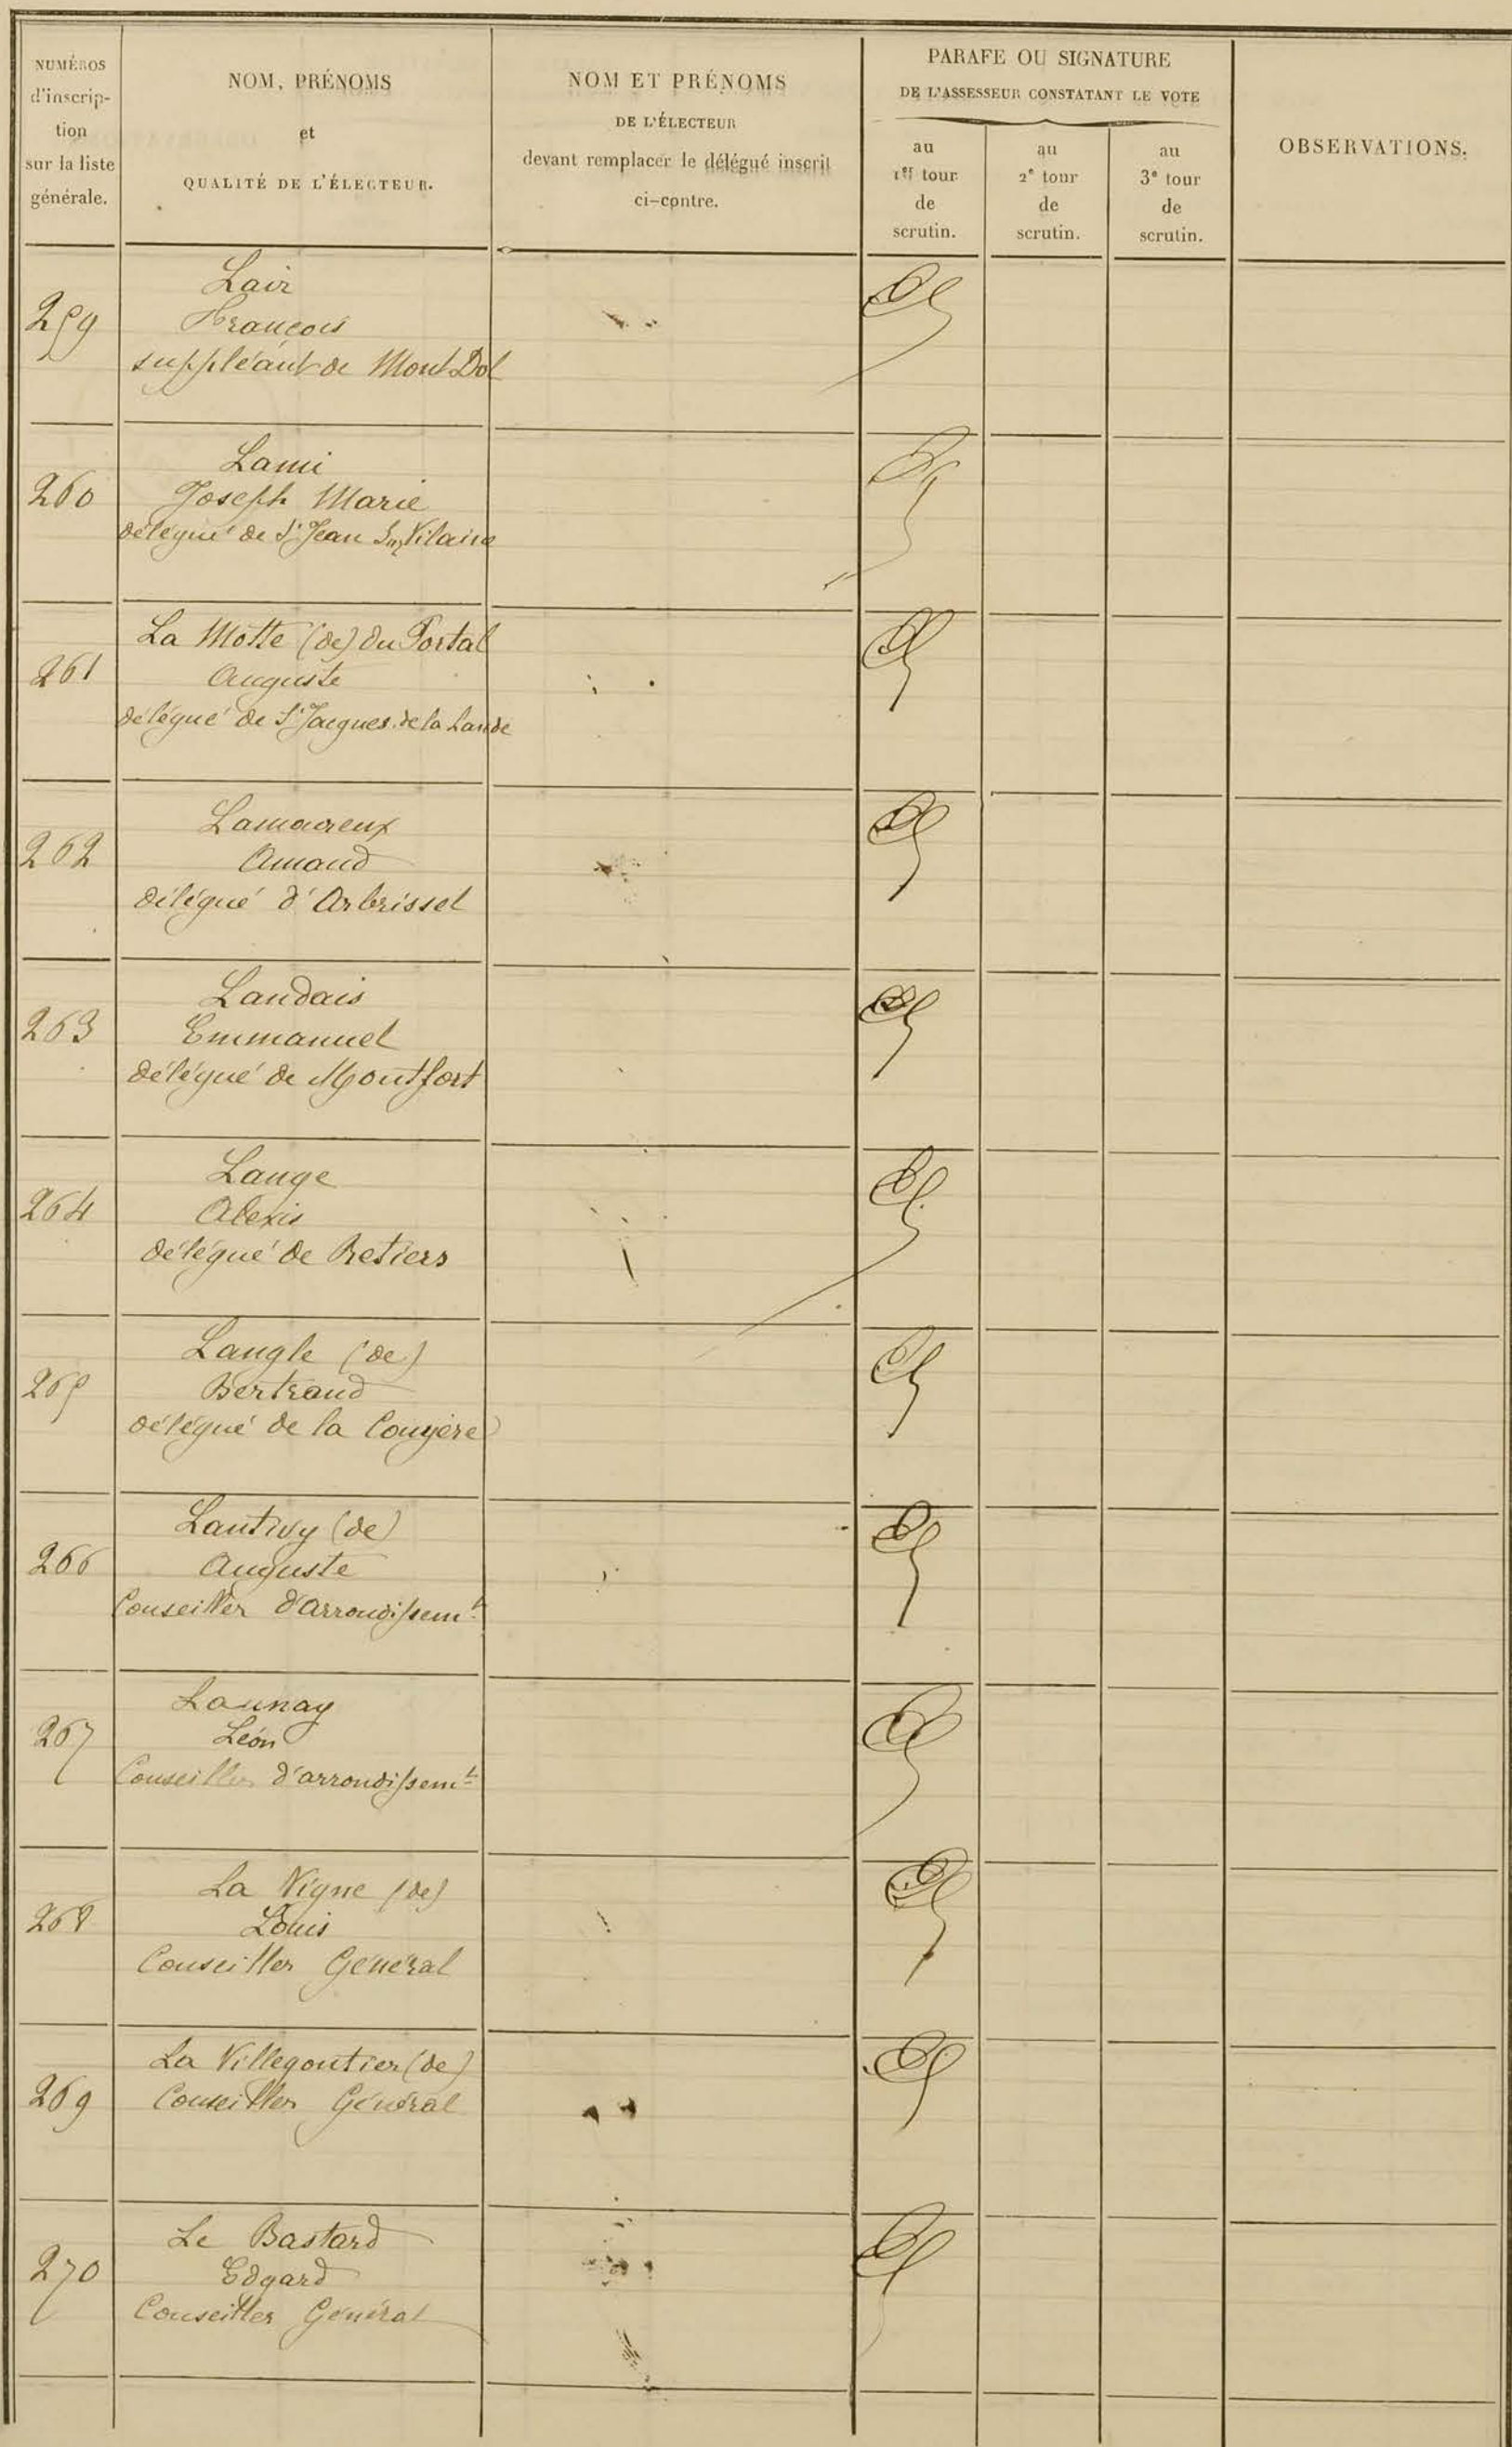 NUMÉROS
d'inscrip-
tion
sur la liste
générale.
NOM, PRÉNOMS
et
QUALITÉ DE L'ÉLECTEUR.
NOM ET PRÉNOMS
DE L'ÉLECTEUR
devant remplacer le délégué inscrit
ci-contre.
PARAFE OU SIGNATURE
DE L'ASSESSEUR CONSTATANT LE VOTE
au
1er tour
de
scrutin.
au
2e tour
de
scrutin.
au
3e tour
de
scrutin.
OBSERVATIONS.
259
Lair
François
suppléant de Mont Dol
260
Lami
Joseph Marie
délégué de St Jean Sur Vilaine
261
La Motte (de) du Portal
Auguste
délégué de St Jacques de la Lande
262
Lamoureux
Amand
délégué d'Arbrissel
263
Landais
Emmanuel
délégué de Montfort
264
Lange
Alexis
délégué de Retiers
265
Langle (de)
Bertrand
délégué de la Couyère
266
Lantivy (de)
Auguste
Conseiller d'arrondissemt
267
Launay
Léon
Conseiller d'arrondissemt
268
La Vigne (de)
Louis
Conseiller Général
269
La Villegontier (de)
Conseiller Général
270
Le Bastard
Edgard
Conseiller Général